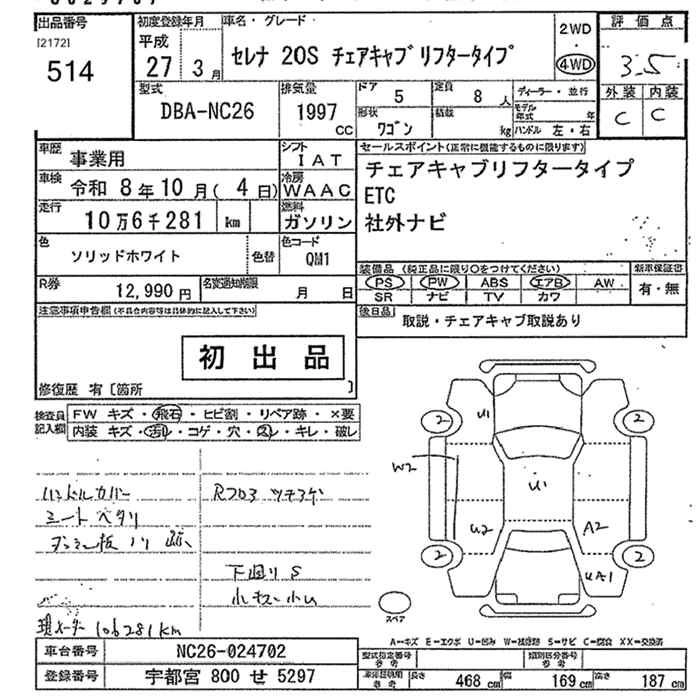 出品番号
[2172]
514
初度登録年月
平成
27 3月
車名・グレード
セレナ 20S チェアキャブ リフタータイプ
2WD
・
4WD
評価点
3.5
外装 内装
C C
型式
DBA-NC26
排気量
1997
CC
ドア 5
定員 8人
形状 ワゴン
積載 kg
ディーラー・並行
モデル年式 年
ハンドル 左・右
車歴 事業用
シフト
IAT
車検 令和 8年10月( 4日)
冷房
WAAC
走行
10万6千281 km
燃料
ガソリン
セールスポイント(正常に機能するものに限ります)
チェアキャブリフタータイプ
ETC
社外ナビ
色
ソリッドホワイト
色替
色コード
QM1
装備品 (純正品に限り○をつけてください)
PS PW ABS エアB AW
SR ナビ TV カワ
新車保証書
有・無
R券
12,990円
名変通知期限
月 日
後日品
取説・チェアキャブ取説あり
注意事項申告欄(不具合内容等は具体的に記入して下さい)
初出品
修復歴 有〔箇所 〕
検査員記入欄
FW キズ・飛石・ヒビ割・リペア跡・×要
内装 キズ・汚れ・コゲ・穴・スレ・キレ・破レ
ハンドルカバー
シートベタリ
Rフロア
下廻りS
現メーター 106281km
U1
2 2
W2
U1
U2
A2
2 2
UA1
スペア
A=キズ E=エクボ U=凹み W=補修跡 S=サビ C=腐食 XX=交換済
車台番号
NC26-024702
登録番号
宇都宮 800 せ 5297
型式指定番号
参考
類別区分番号
参考
車庫証明用
参考
長さ 468cm
幅 169cm
高さ 187cm